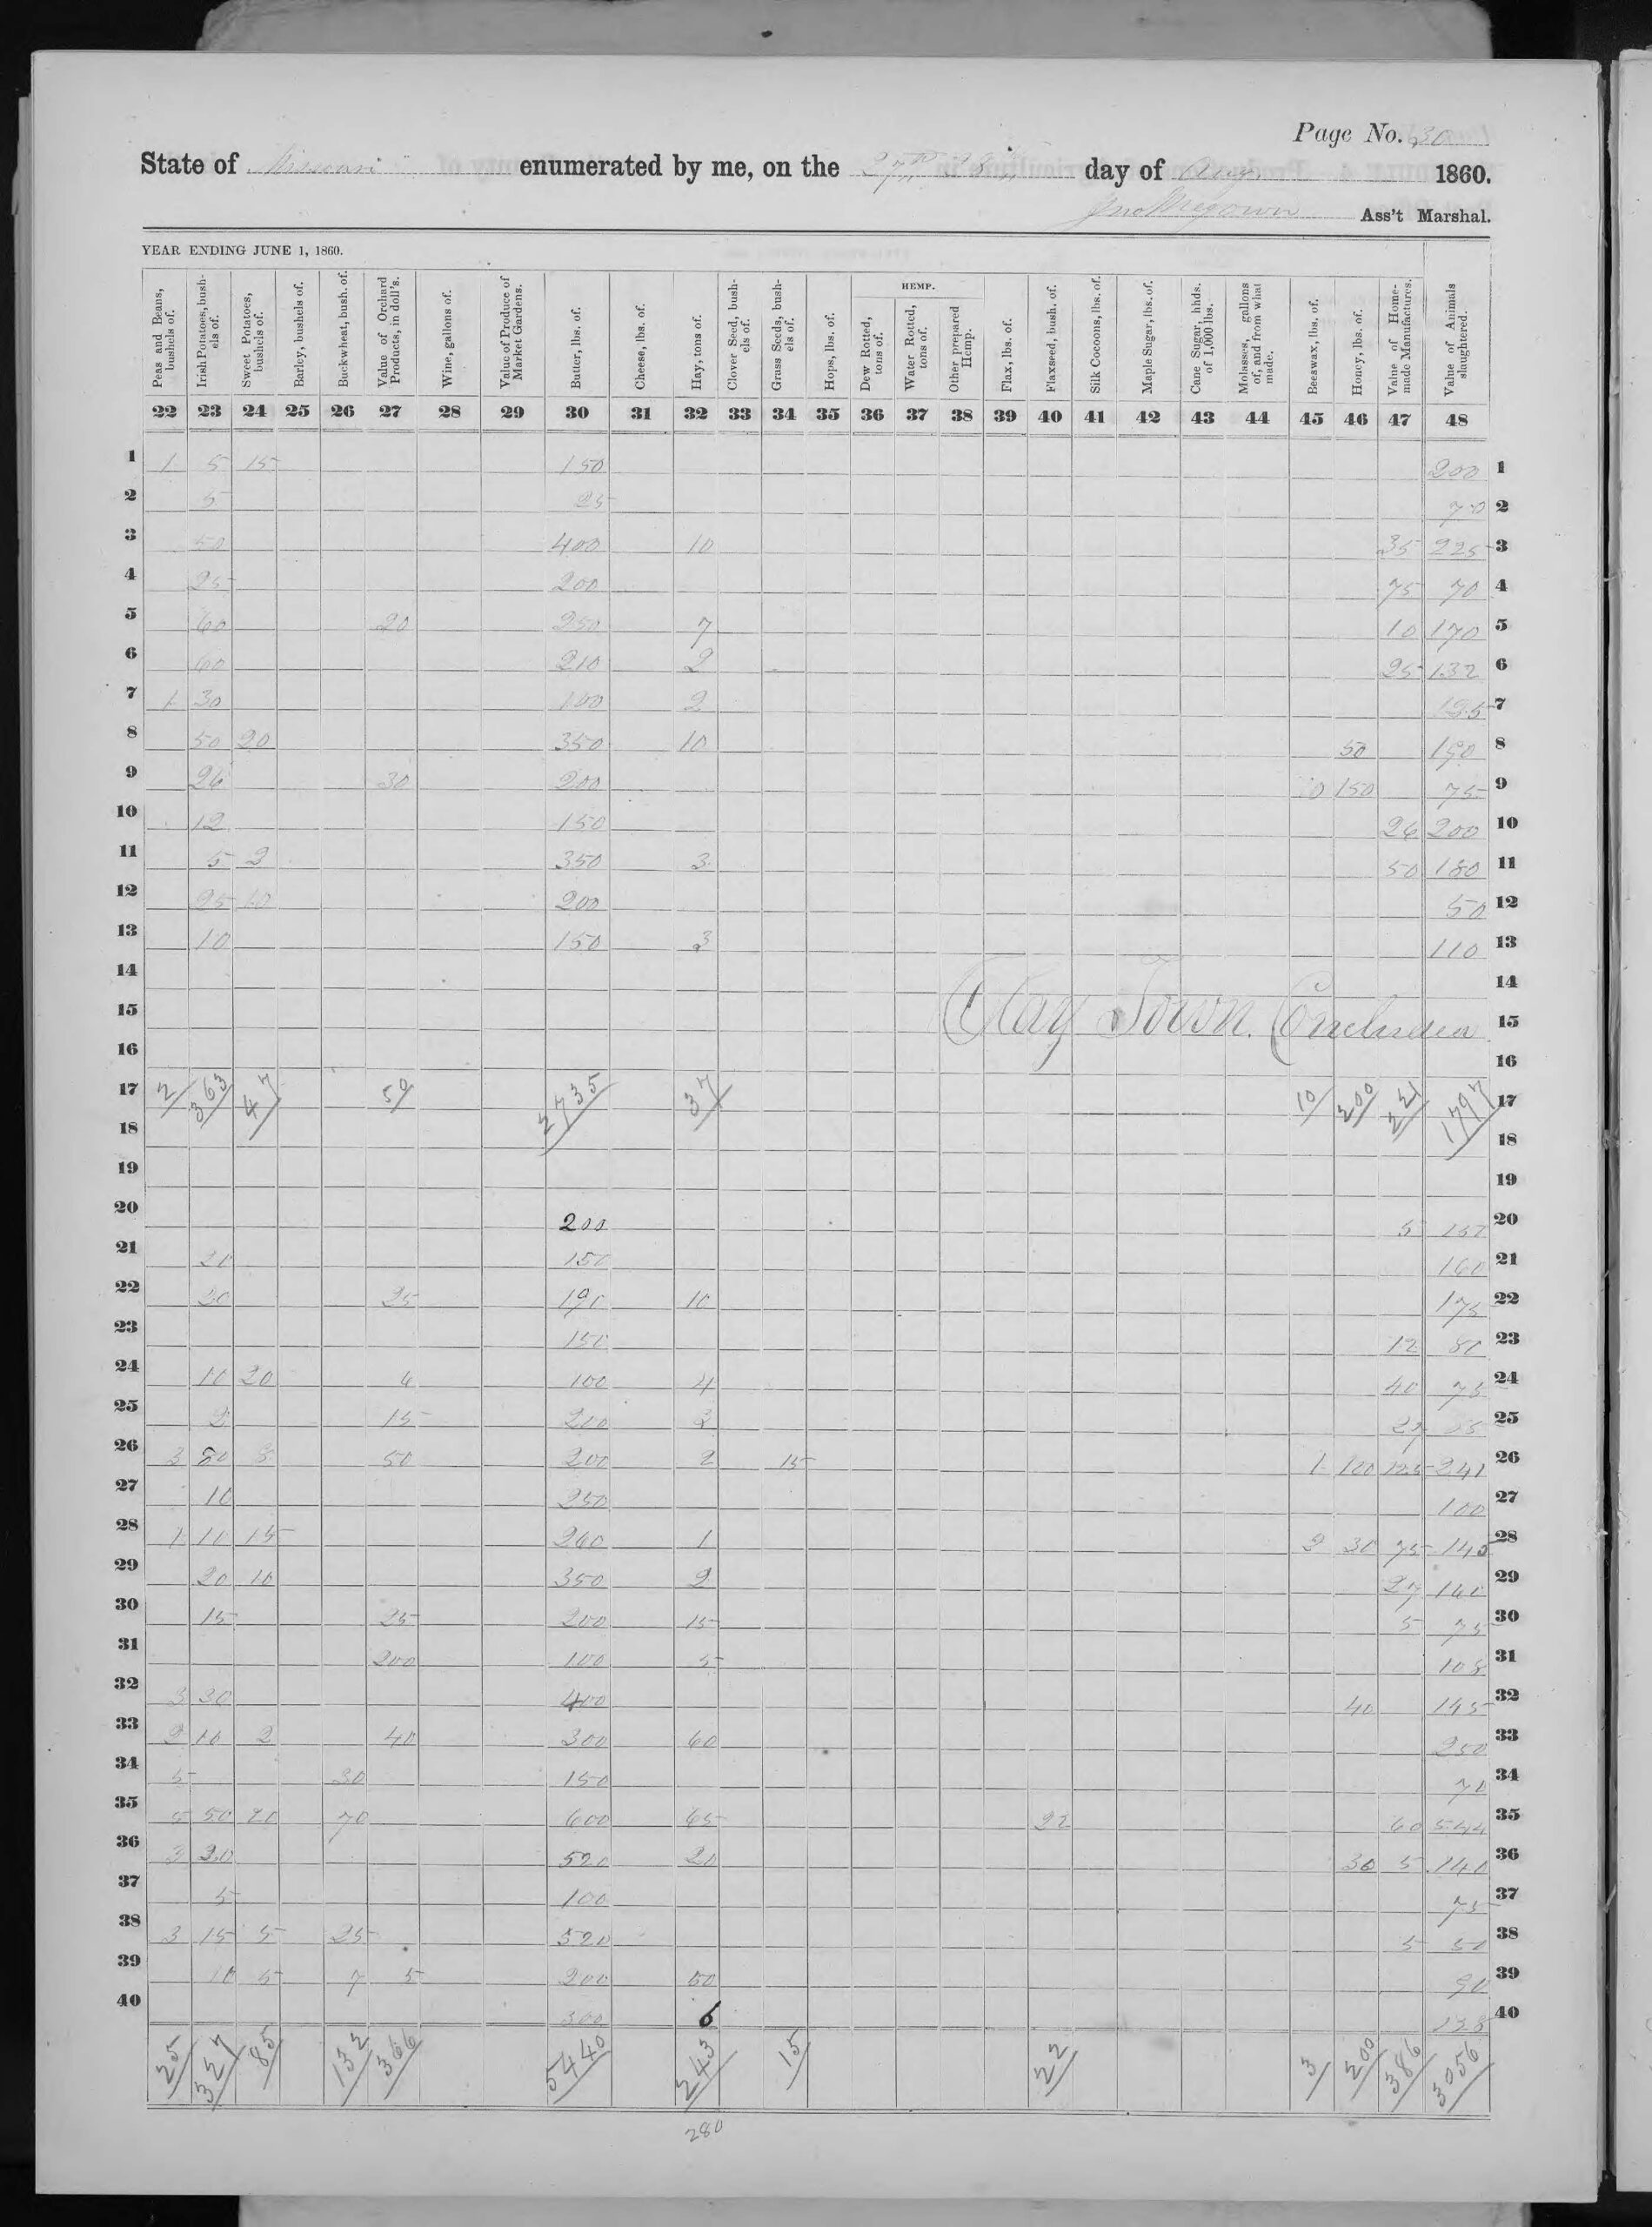 Page No. 30
State of Missouri enumerated by me, on the 27th 28 day of Aug 1860.
Jno Megown Ass't Marshal.
YEAR ENDING JUNE 1, 1860.
HEMP.
Peas and Beans, bushels of. Irish Potatoes, bushels of. Sweet Potatoes, bushels of. Barley, bushels of. Buckwheat, bush. of. Value of Orchard Products, in doll's. Wine, gallons of. Value of Produce of Market Gardens. Butter, lbs. of. Cheese, lbs. of. Hay, tons of. Clover Seed, bushels of. Grass Seeds, bushels of. Hops, lbs. of. Dew Rotted, tons of. Water Rotted, tons of. Other prepared Hemp. Flax, lbs. of. Flaxseed, bush. of. Silk Cocoons, lbs. of. Maple Sugar, lbs. of. Cane Sugar, hhds. of 1,000 lbs. Molasses, gallons of, and from what made. Beeswax, lbs. of. Honey, lbs. of. Value of Home-made Manufactures. Value of Animals slaughtered.
22 23 24 25 26 27 28 29 30 31 32 33 34 35 36 37 38 39 40 41 42 43 44 45 46 47 48
1 1 5 15 150 200 1
2 5 25 70 2
3 50 400 10 35 225 3
4 25 200 75 70 4
5 60 20 250 7 10 170 5
6 60 210 2 25 132 6
7 1 30 100 2 7
8 50 20 350 10 50 190 8
9 26 30 200 10 150 75 9
10 12 150 26 200 10
11 5 2 350 3 50 180 11
12 25 10 200 50 12
13 10 150 3 110 13
14 14
15 Clay Town. Concluded 15
16 16
17 2 363 47 50 2735 37 10 200 221 1797 17
18 18
19 19
20 200 5 157 20
21 20 150 160 21
22 20 25 190 10 175 22
23 150 12 80 23
24 10 20 6 100 4 40 75 24
25 2 15 200 3 27 25
26 3 80 8 50 200 2 15 1 100 125 241 26
27 10 250 100 27
28 1 10 15 260 1 2 30 75 145 28
29 20 10 350 2 27 140 29
30 15 25 200 15 5 75 30
31 200 100 5 108 31
32 3 30 400 40 145 32
33 2 10 2 40 300 60 250 33
34 5 30 150 70 34
35 5 50 20 70 600 65 22 60 544 35
36 3 20 520 20 30 5 140 36
37 5 100 75 37
38 3 15 5 25 520 5 50 38
39 10 5 7 5 200 50 90 39
40 300 6 128 40
25 327 85 132 366 5440 243 15 22 3 200 386 3056
280